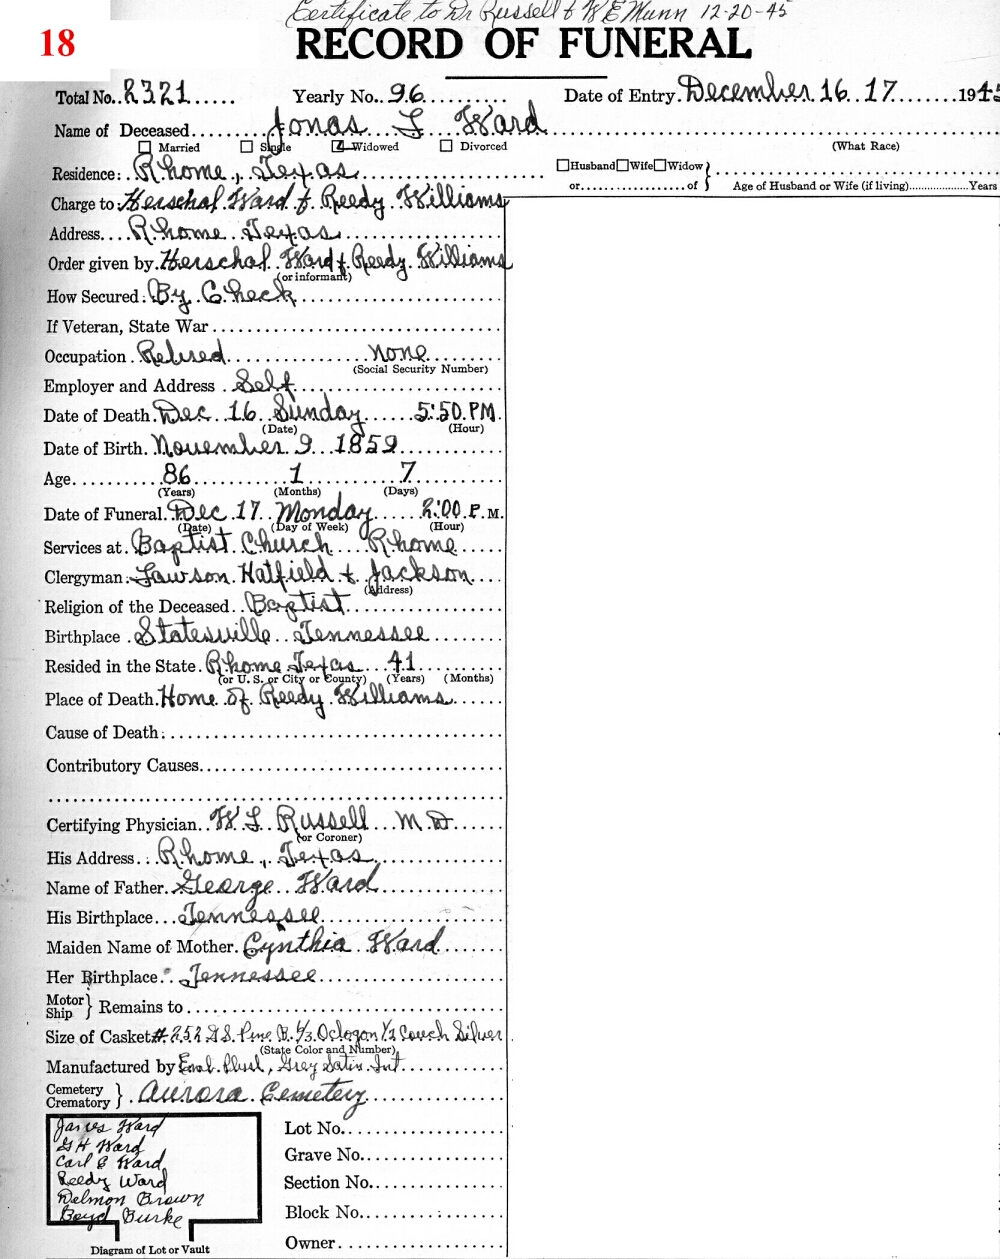 Certificate to Dr Russell & W E Munn 12-20-45
18
RECORD OF FUNERAL
Total No. 2321 Yearly No. 96 Date of Entry. December 16 17 1945
Name of Deceased Jonas L Ward
(What Race)
☐ Married ☐ Single ☑ Widowed ☐ Divorced
Residence: Rhome, Texas
☐ Husband ☐ Wife ☐ Widow
or of Age of Husband or Wife (if living) Years
Charge to Herschal Ward & Reedy Williams
Address Rhome Texas
Order given by Herschal Ward & Reedy Williams
(or informant)
How Secured: By Check
If Veteran, State War
Occupation Retired none
(Social Security Number)
Employer and Address Self
Date of Death. Dec 16 Sunday 5:50 PM.
(Date) (Hour)
Date of Birth. November 9 1859
Age 86 1 7
(Years) (Months) (Days)
Date of Funeral. Dec 17 Monday 2:00 P.M.
(Date) (Day of Week) (Hour)
Services at Baptist Church Rhome
Clergyman: Lawson Hatfield & Jackson
(Address)
Religion of the Deceased Baptist
Birthplace Statesville Tennessee
Resided in the State. Rhome Texas 41
(or U. S. or City or County) (Years) (Months)
Place of Death. Home of Reedy Williams
Cause of Death:
Contributory Causes
Certifying Physician W L Russell M.D.
(or Coroner)
His Address Rhome, Texas
Name of Father. George Ward
His Birthplace Tennessee
Maiden Name of Mother. Cynthia Ward
Her Birthplace Tennessee
Motor
Ship } Remains to
Size of Casket # 252 Pine Octogon 1/2 Couch Silver
(State Color and Number)
Manufactured by Emb. Plush, Grey Satin Int
Cemetery
Crematory } Aurora Cemetery
James Ward
G H Ward
Carl E Ward
Reedy Ward
Delmon Brown
Boyd Burke
Diagram of Lot or Vault
Lot No.
Grave No.
Section No.
Block No.
Owner